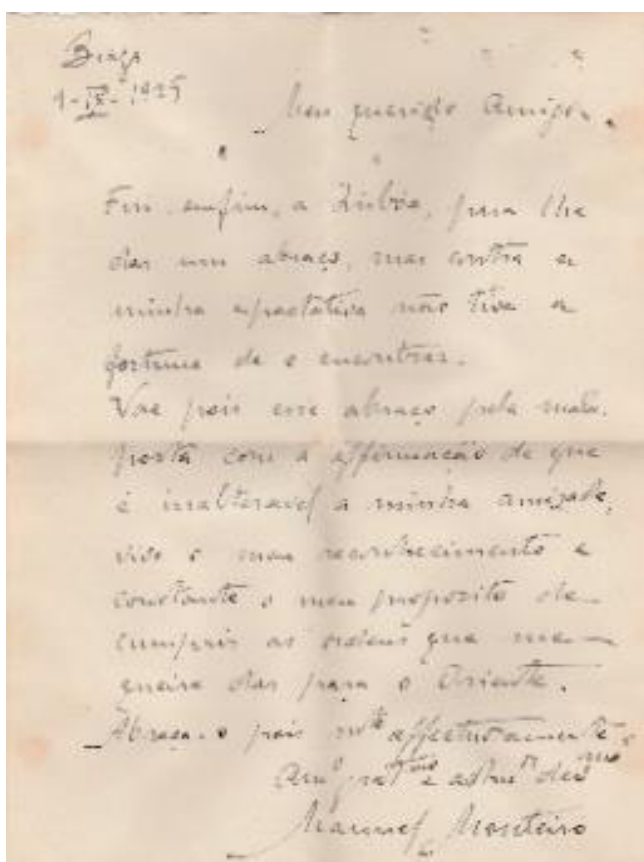 Braga
1-IX-1925
Meu querido Amigo.
Fui, emfim, a Lisbôa, para lhe
dar um abraço, mas contra a
minha espectativa não tive a
fortuna de o encontrar.
Vae pois esse abraço pela mala-
posta com a affirmação de que
é inalteravel a minha amizade,
vivo o meu reconhecimento e
constante o meu proposito de
cumprir as ordens que me
queira dar para o Oriente.
Abraça-o pois mto affectuosamente
Amo grat mo e
Manuel Monteiro